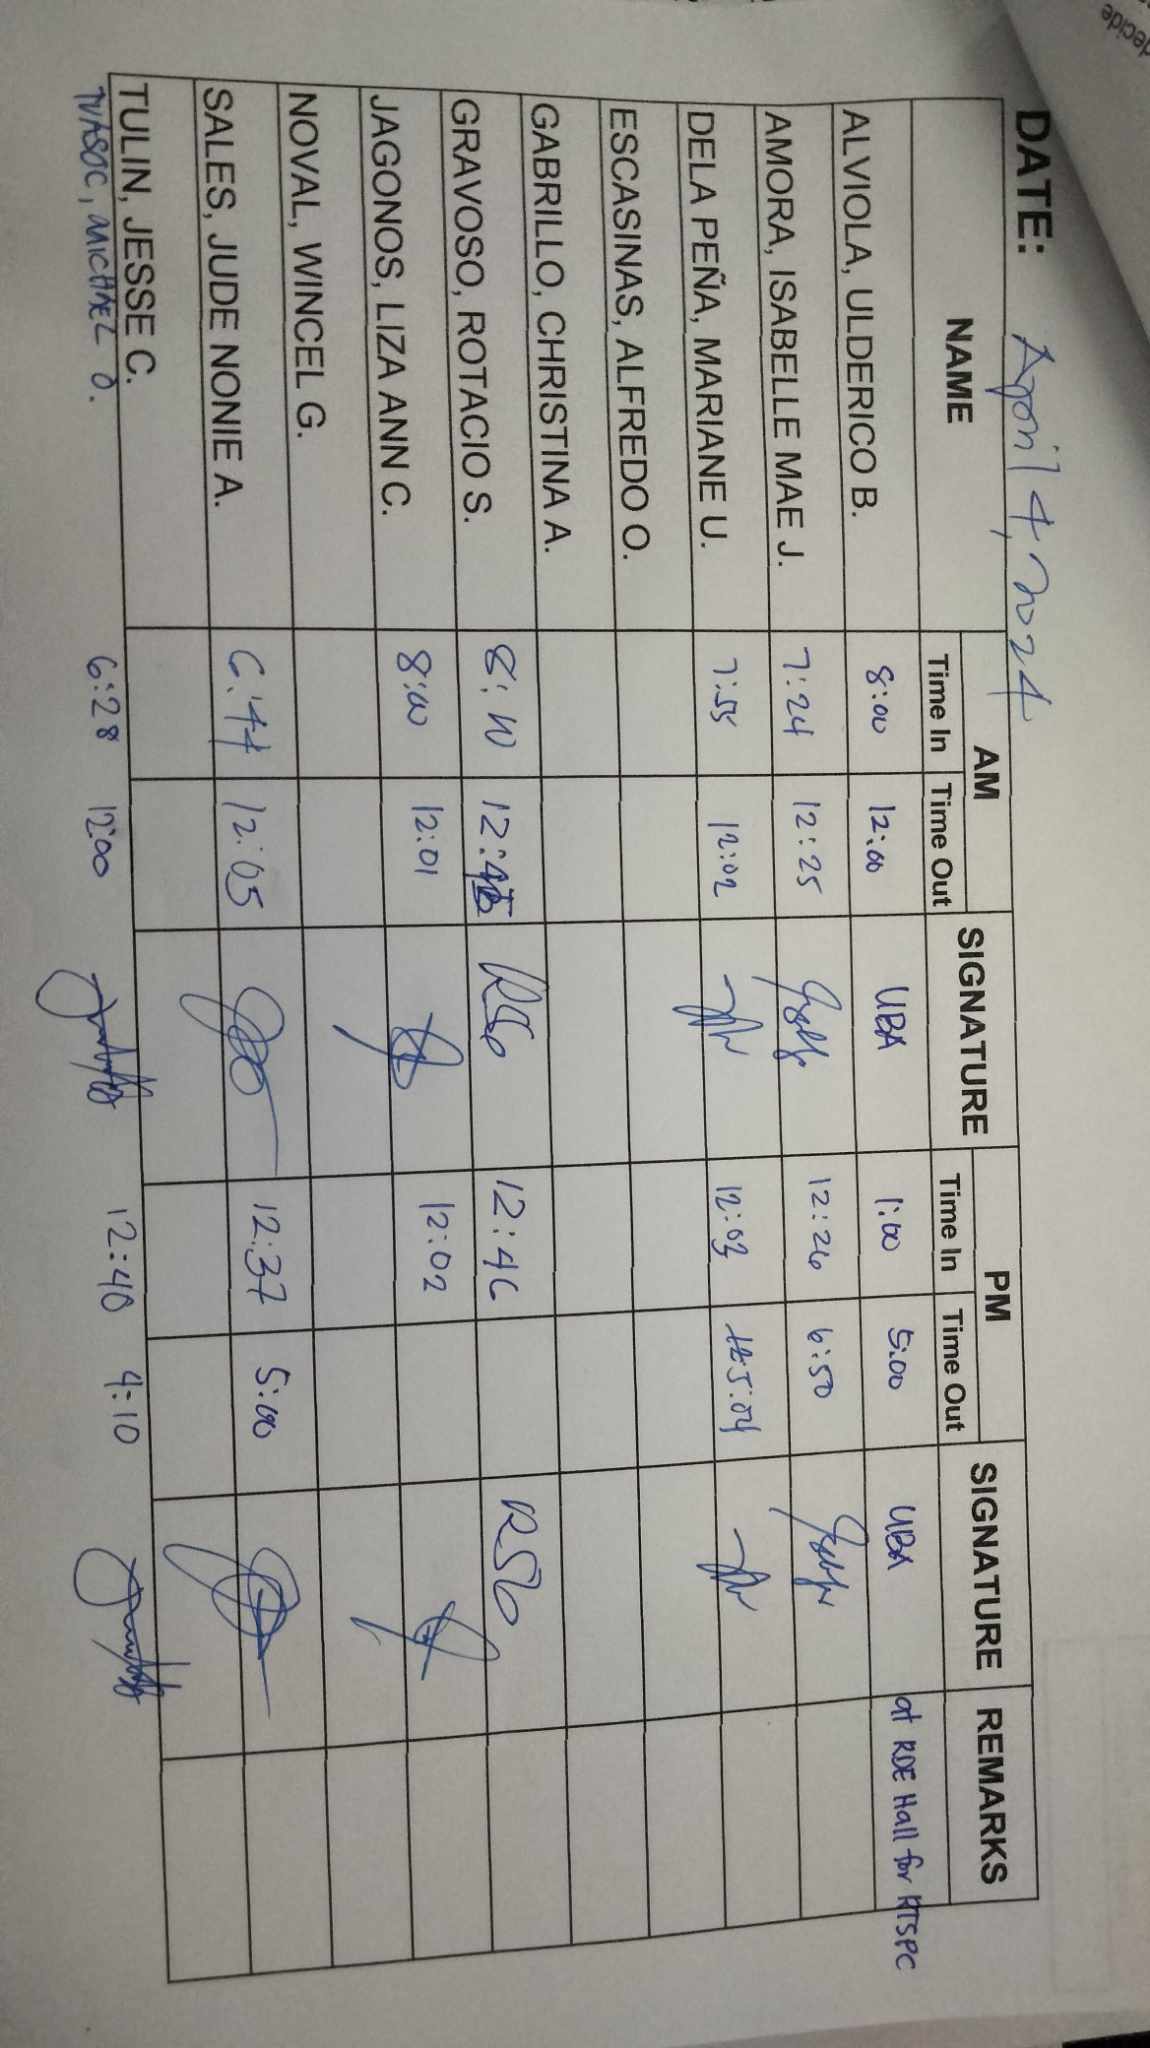 decide
DATE: April 4, 2024
NAME AM SIGNATURE PM SIGNATURE REMARKS
Time In Time Out Time In Time Out
ALVIOLA, ULDERICO B. 8:00 12:00 UBA 1:00 5:00 UBA at RDE Hall for RTSPC
AMORA, ISABELLE MAE J. 7:24 12:25 12:26 6:50
DELA PEÑA, MARIANE U. 7:55 12:02 12:03 5:04
ESCASINAS, ALFREDO O.
GABRILLO, CHRISTINA A.
GRAVOSO, ROTACIO S. 8:10 RSG 12:46 RSG
JAGONOS, LIZA ANN C. 8:00 12:01 12:02
NOVAL, WINCEL G.
SALES, JUDE NONIE A. 6:44 12:05 12:37 5:00
TULIN, JESSE C.
TUASOC, MICHAEL O. 6:28 12:00 12:40 4:10